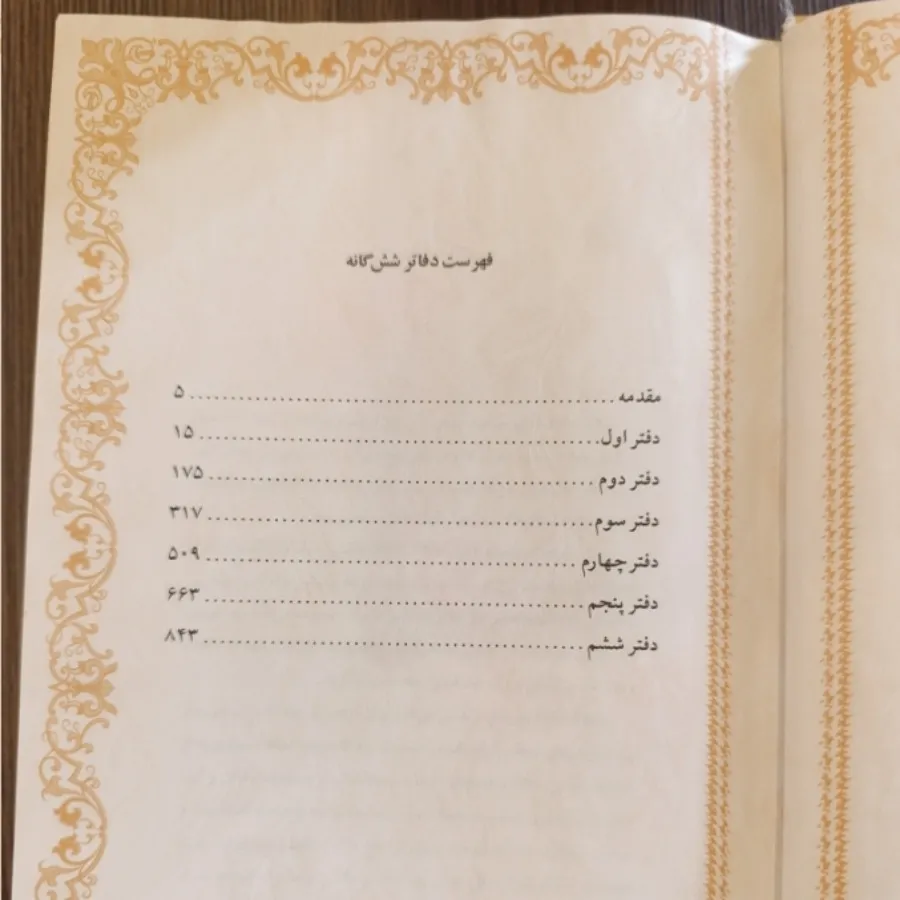 فهرست دفاتر شش‌گانه
مقدمه ........................................................ ۵
دفتر اول ........................................................ ۱۵
دفتر دوم ........................................................ ۱۷۵
دفتر سوم ........................................................ ۳۱۷
دفتر چهارم ........................................................ ۵۰۹
دفتر پنجم ........................................................ ۶۶۳
دفتر ششم ........................................................ ۸۴۳